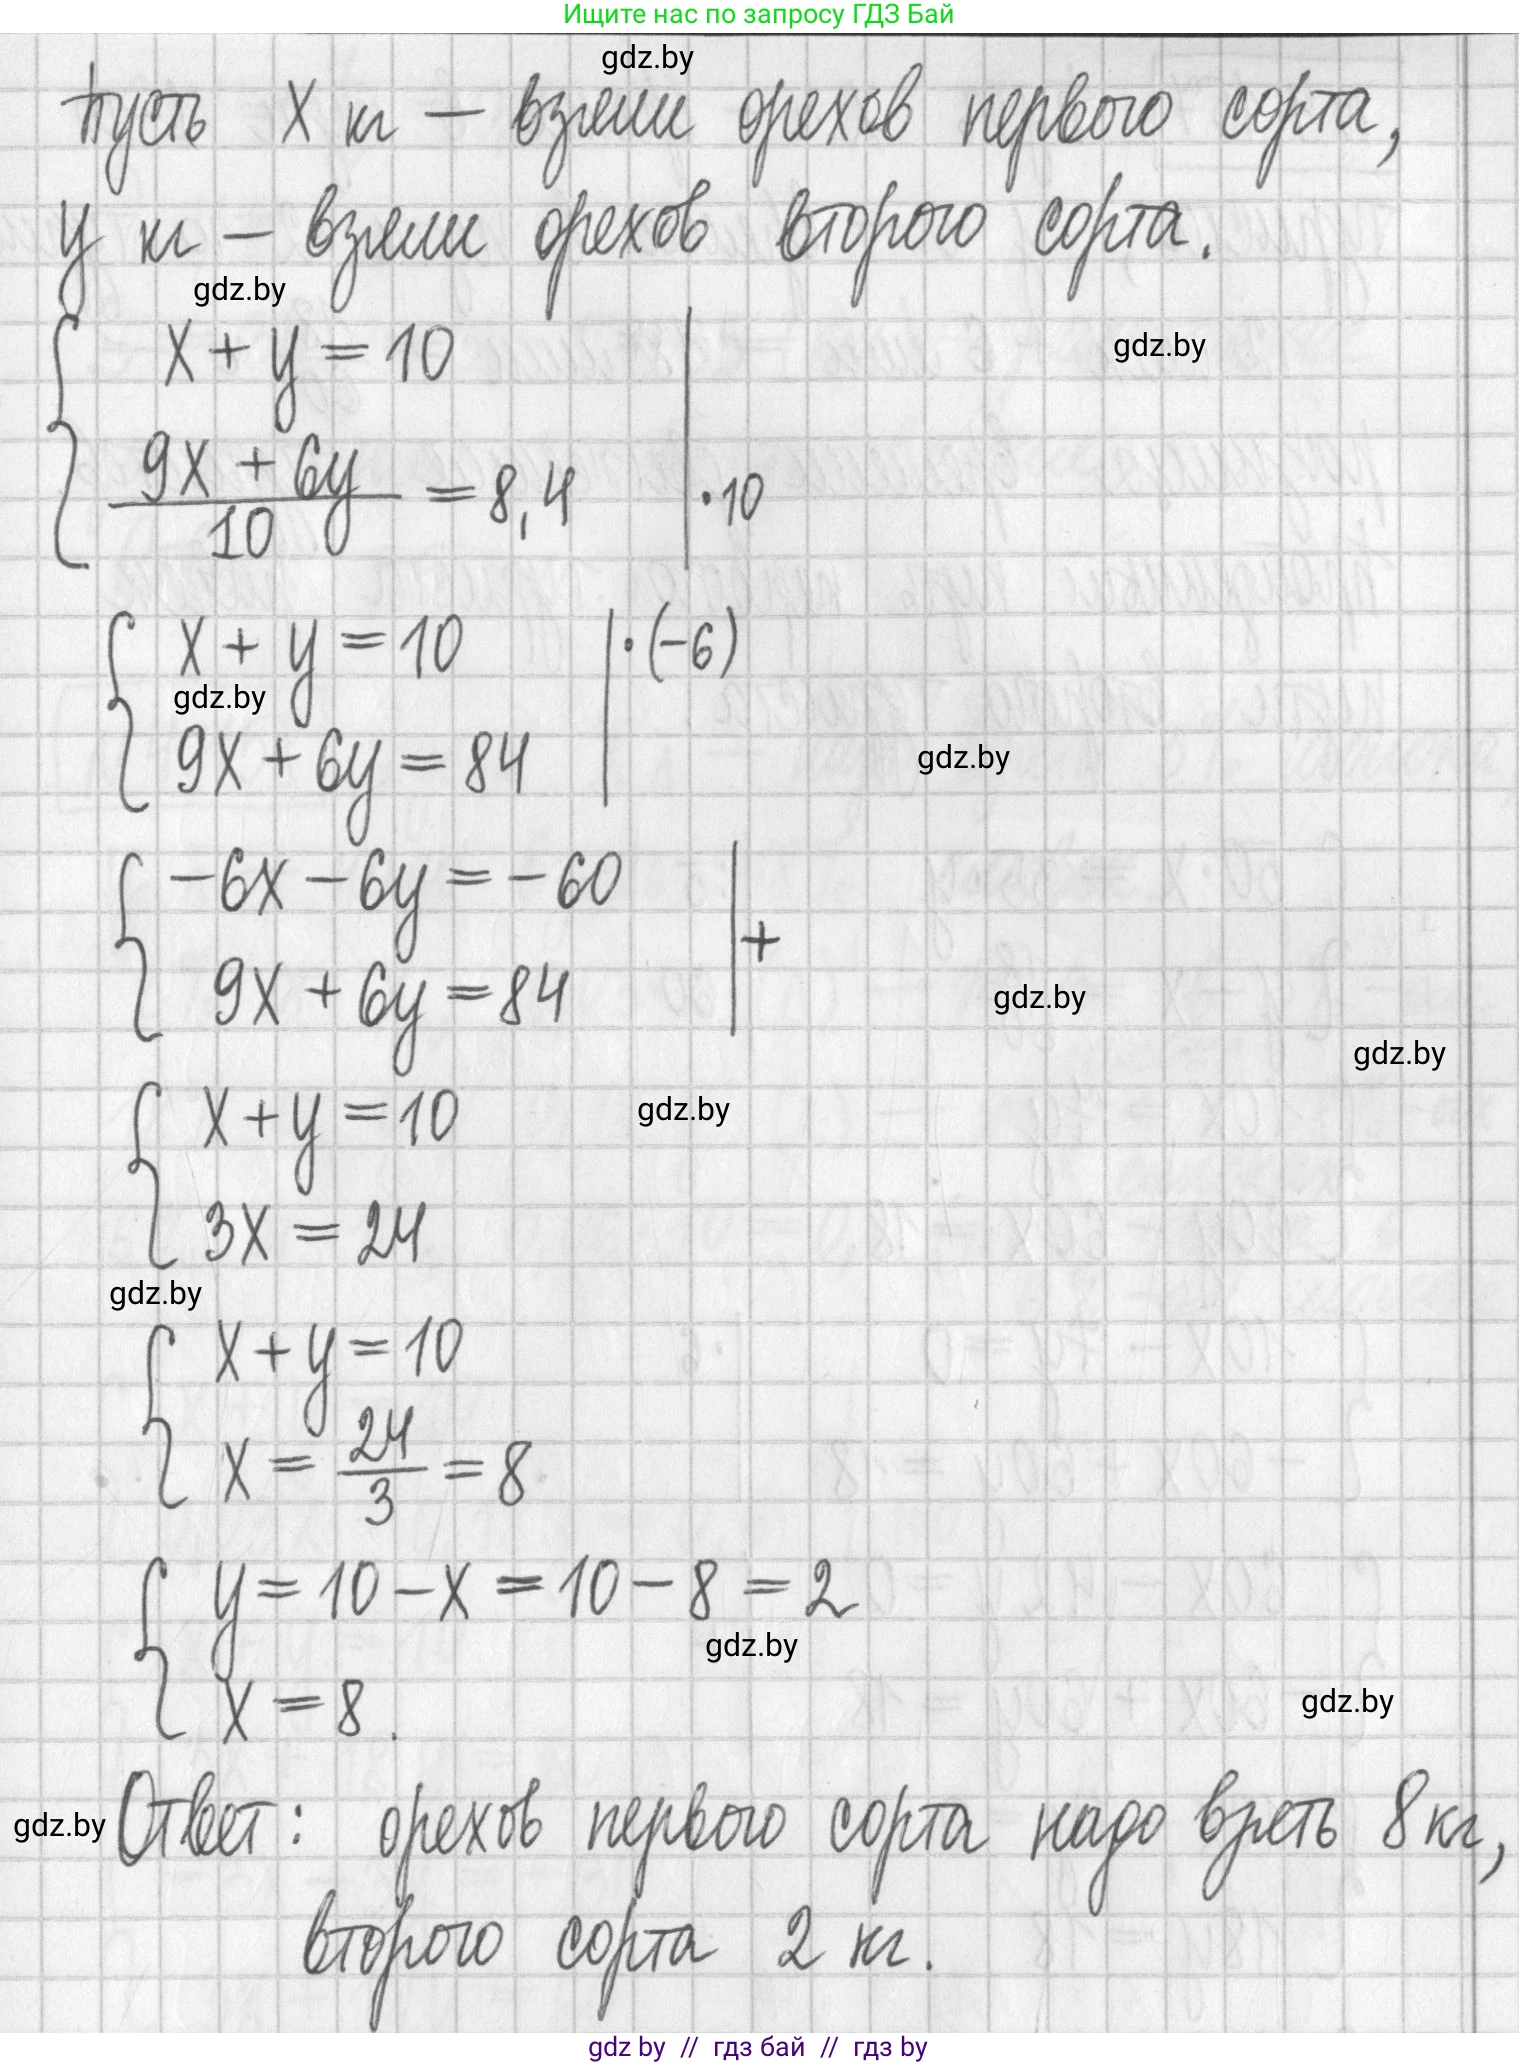 Ищите нас по запросу ГДЗ Бай
gdz.by
Пусть x кг – взяли орехов первого сорта,
y кг – взяли орехов второго сорта.
gdz.by
x + y = 10
gdz.by
9x + 6y
= 8,4
· 10
10
x + y = 10 | · (-6)
gdz.by
9x + 6y = 84
gdz.by
-6x - 6y = -60
+
9x + 6y = 84
gdz.by
gdz.by
x + y = 10
gdz.by
3x = 24
gdz.by
x + y = 10
x = 24/3 = 8
y = 10 - x = 10 - 8 = 2
gdz.by
x = 8.
gdz.by
gdz.by
Ответ: орехов первого сорта надо взять 8 кг,
второго сорта 2 кг.
gdz by // гдз бай // гдз by